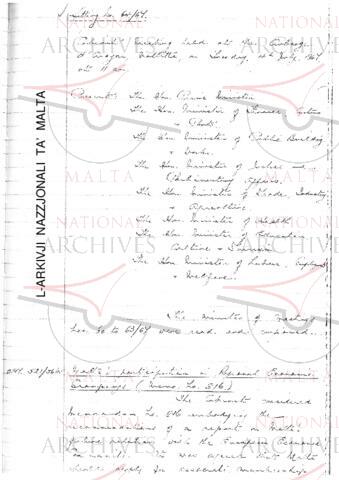 Meeting No. 64/67.
Cabinet Meeting held at the Auberge
d'Aragon, Valletta, on Tuesday, 4th July, 1967
at 11 a.m.
Present: The Hon. Prime Minister
The Hon. Minister of Finance, Customs
& Ports
The Hon. Minister of Public Building
& Works
The Hon. Minister of Justice and
Parliamentary Affairs
The Hon. Minister of Trade, Industry
& Agriculture
The Hon. Minister of Health
The Hon. Minister of Education
Culture & Tourism
The Hon. Minister of Labour, Employ
& Welfare.
The Minutes of Meetings
Nos. to 63/67 were read and confirmed.
Malta's participation in Regional Economic
Groupings (Memo. No. 516)
The Cabinet considered
Memorandum No. 516 embodying the
recommendations of a report on Malta's
future relations with the European Economic
Community. It was agreed that Malta
should apply for associate membership
L-ARKIVJI NAZZJONALI TA' MALTA
NATIONAL
ARCHIVES
MALTA